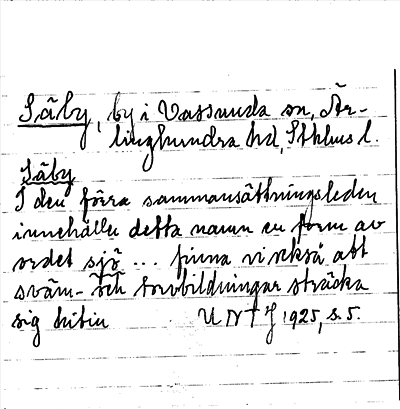 Säby, by i Vassunda sn, Är-
linghundra hd, Sthlms l.
Säby
I den förra sammansättningsleden
innehåller detta namn en form av
ordet sjö ... finna vi också att
sväm- och torvbildningar sträcka
sig hitin UNT J 1925, s. 5.